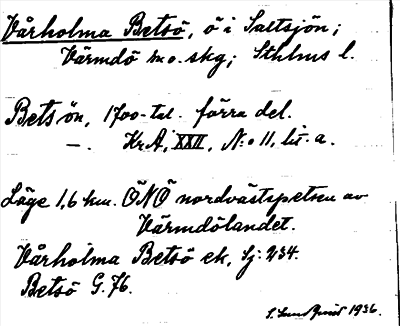 Vårholma Betsö, ö i Saltsjön;
Värmdö m. o. skg; Sthlms l.
Betsön, 1700-tal. förra del.
—. Kr.A, XXII, N:o 11, lit. a.
Läge 1,6 km. ÖNÖ nordvästspetsen av
Värmdölandet.
Vårholma Betsö ek, Sj: 234.
Betsö G. 76.
1936.